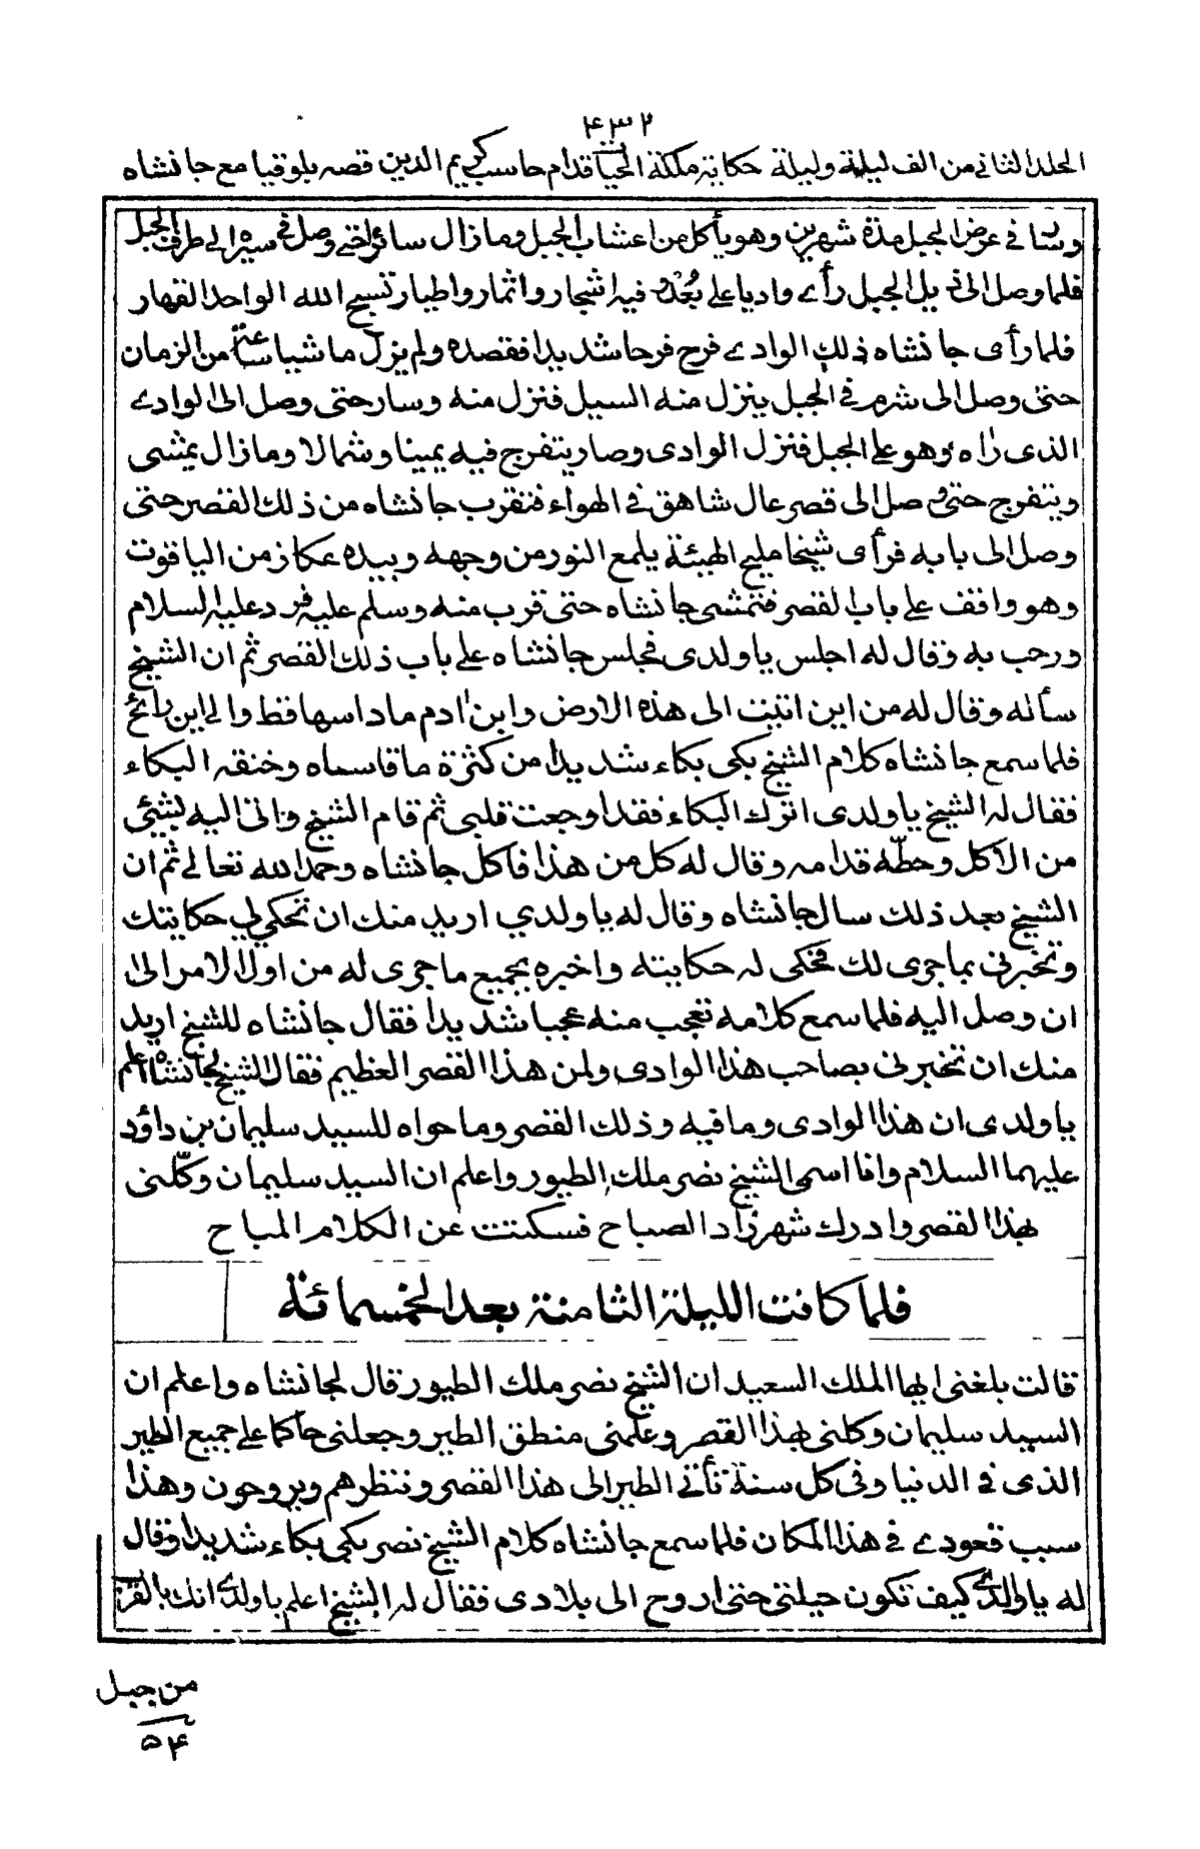 ۴۳۲
المجلد الثانی من الف لیلة ولیلة حکایة ملکة الحیات قدام حاسب کریم الدین قصه بلوقیا مع جانشاه
وسار فی عرض الجبل مدة شهرین وهو یأکل من اعشاب الجبل وما زال سائرا حتی وصل فی سیره الی طرف الجبل
فلما وصل الی ذیل الجبل رأے وادیا علی بُعد وفیه اشجار واثمار واطیار تسبح الله الواحد القهار
فلما رأی جانشاه ذلك الوادے فرح فرحا شدیدا فقصده ولم یزل ماشیا ساعة من الزمان
حتی وصل الی شرم فی الجبل ینزل منه السیل فنزل منه وسار حتی وصل الی الوادے
الذی رآه وهو علی الجبل فنزل الوادی وصار یتفرج فیه یمینا وشمالا وما زال یمشی
ویتفرج حتی وصل الی قصر عال شاهق فی الهواء فتقرب جانشاه من ذلك القصر حتی
وصل الی بابه فرأی شیخا ملیح الهیئة یلمع النور من وجهه وبیده عکاز من الیاقوت
وهو واقف علی باب القصر فتمشی جانشاه حتی قرب منه وسلم علیه فرد علیه السلام
ورحب به وقال له اجلس یا ولدی فجلس جانشاه علی باب ذلك القصر ثم ان الشیخ
سأله وقال له من این اتیت الی هذه الارض وابن آدم ما داسها قط والی این رائح
فلما سمع جانشاه کلام الشیخ بکی بکاء شدیدا من کثرة ما قاساه وخنقه البکاء
فقال له الشیخ یا ولدی اترك البکاء فقد اوجعت قلبی ثم قام الشیخ واتی الیه بشیئ
من الاکل وحطّه قدامه وقال له کل من هذا فاکل جانشاه وحمد الله تعالی ثم ان
الشیخ بعد ذلك سال جانشاه وقال له یا ولدي ارید منك ان تحکی لی حکایتك
وتخبرنی بما جری لك فحکی له حکایته واخبره بجمیع ما جری له من اول الامر الی
ان وصل الیه فلما سمع کلامه تعجب منه عجبا شدیدا فقال جانشاه للشیخ ارید
منك ان تخبرنی بصاحب هذا الوادی ولمن هذا القصر العظیم فقال الشیخ لجانشاه اعلم
یا ولدی ان هذا الوادی وما فیه وذلك القصر وما حواه للسید سلیمان بن داؤد
علیهما السلام وانا اسمی الشیخ نصر ملك الطیور واعلم ان السید سلیمان وکّلنی
بهذا القصر وادرك شهرزاد الصباح فسکتت عن الکلام المباح
فلما کانت اللیلة الثامنة بعد الخمسمائة
قالت بلغنی ایها الملك السعید ان الشیخ نصر ملك الطیور قال لجانشاه واعلم ان
السید سلیمان وکلنی بهذا القصر وعلمنی منطق الطیر وجعلنی حاکما علی جمیع الطیر
الذی فی الدنیا وفی کل سنة تأتی الطیر الی هذا القصر وننظرهم ویروحون وهذا
سبب قعودے فی هذا المکان فلما سمع جانشاه کلام الشیخ نصر بکی بکاء شدیدا وقال
له یا والدی کیف تکون حیلتی حتی اروح الی بلادی فقال له الشیخ اعلم یا ولدی انك بالقرب
من جبل
۵۴